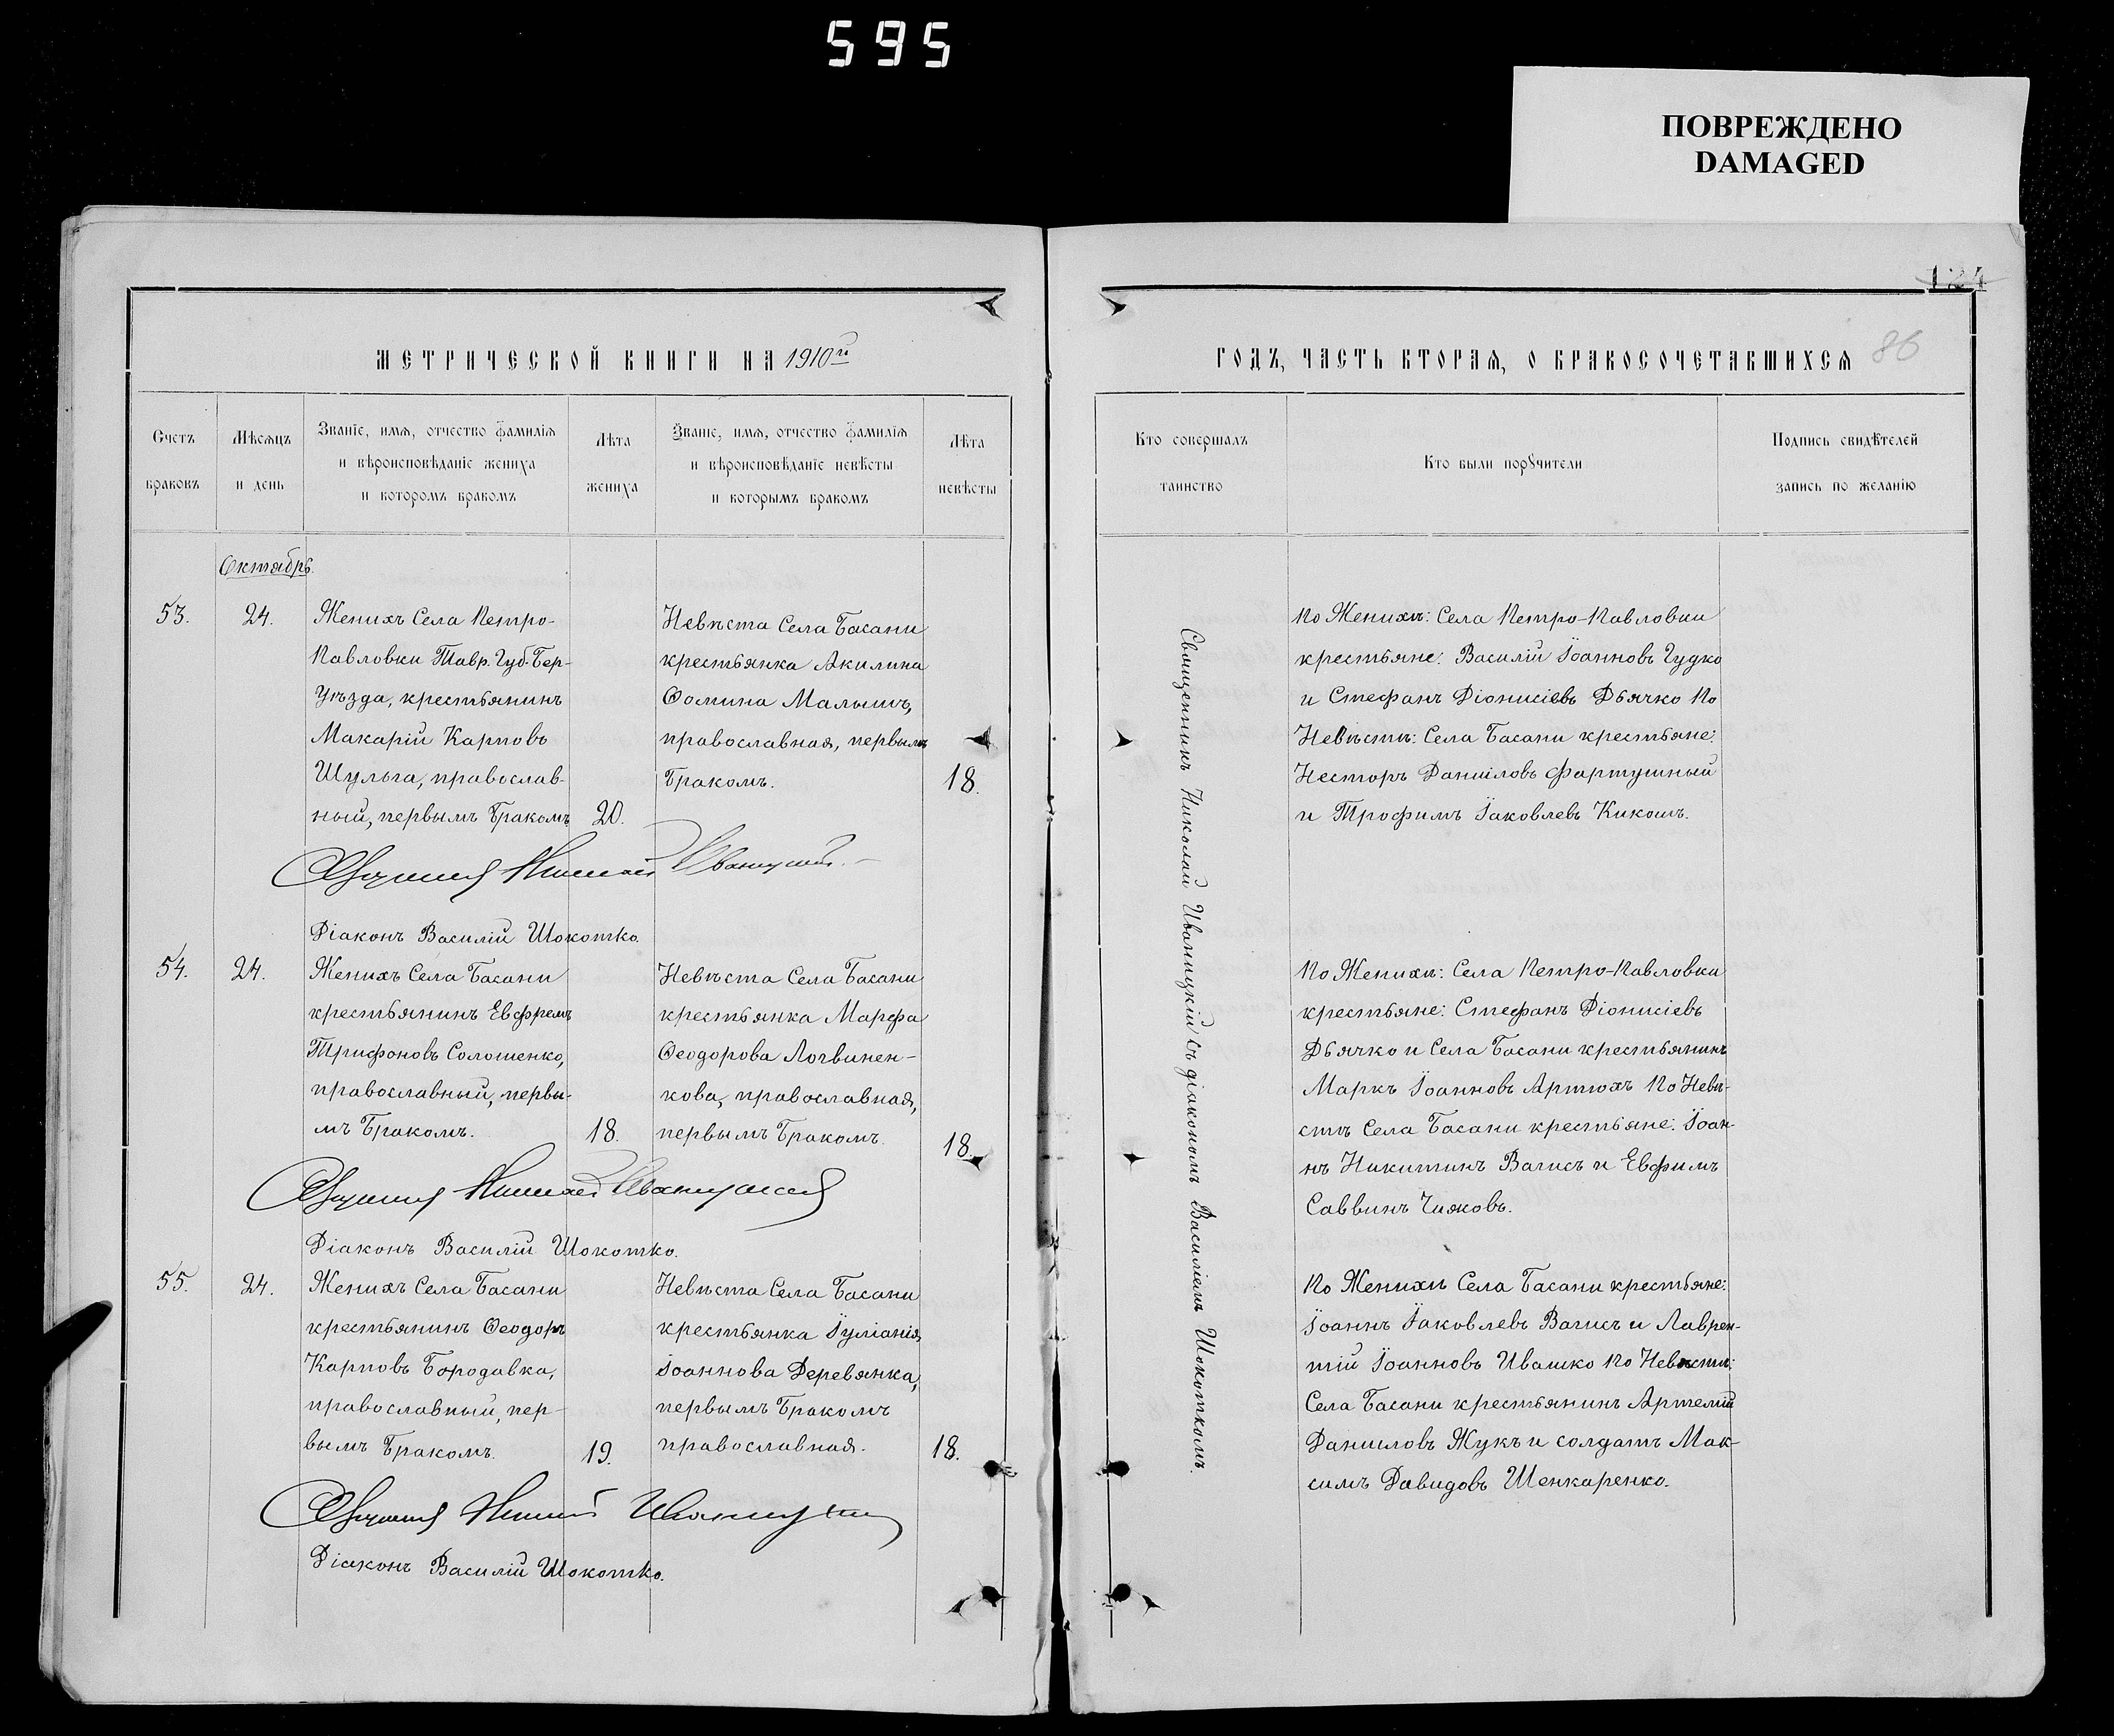 595
ПОВРЕЖДЕНО
DAMAGED
124
86
МЕТРИЧЕСКОЙ КНИГИ НА 1910й
ГОДЪ, ЧАСТЬ ВТОРАЯ, О БРАКОСОЧЕТАВШИХСЯ
Счетъ
браковъ
Мѣсяцъ
и день
Званіе, имя, отчество фамилія
и вѣроисповѣданіе жениха
и которомъ бракомъ
Лѣта
жениха
Званіе, имя, отчество фамилія
и вѣроисповѣданіе невѣсты
и которымъ бракомъ
Лѣта
невѣсты
Кто совершалъ
таинство
Кто были порꙋчители
Подпись свидѣтелей
запись по желанію
Октябрь.
53.
24.
Женихъ Села Петро-
Павловки Тавр. Губ. Бер-
Уѣзда, крестьянинъ
Макарій Карповъ
Шульга, православ-
ный, первымъ Бракомъ
20.
Невѣста Села Басани
крестьянка Акилина
Ѳомина Малышъ,
православная, первымъ
Бракомъ.
18.
По Женихѣ: Села Петро-Павловки
крестьяне: Василій Іоанновъ Гудко
и Стефанъ Діонисіевъ Дьячко По
Невѣстѣ: Села Басани крестьяне:
Несторъ Даниловъ Фартушный
и Трофимъ Іаковлевъ Кикошъ.
Священникъ Николай Иваницкій
Діаконъ Василій Шокотко.
54.
24.
Женихъ Села Басани
крестьянинъ Евфремъ
Трифоновъ Солошенко,
православный, первы-
мъ Бракомъ.
18.
Невѣста Села Басани
крестьянка Марфа
Ѳеодорова Логвинен-
кова, православная,
первымъ Бракомъ.
18.
По Женихѣ: Села Петро-Павловки
крестьяне: Стефанъ Діонисіевъ
Дьячко и Села Басани крестьянинъ
Маркъ Іоанновъ Артюхъ По Невѣ-
стѣ Села Басани крестьяне: Іоан-
нъ Никитинъ Вагисъ и Евфимъ
Саввинъ Чижовъ.
Священникъ Николай Иваницкій
Діаконъ Василій Шокотко.
55.
24.
Женихъ Села Басани
крестьянинъ Ѳеодоръ
Карповъ Бородавка,
православный, пер-
вымъ Бракомъ.
19.
Невѣста Села Басани
крестьянка Іуліанія
Іоаннова Деревянка,
первымъ Бракомъ
православная.
18.
По Женихѣ Села Басани крестьяне:
Іоаннъ Іаковлевъ Вагисъ и Лаврен-
тій Іоанновъ Ивашко По Невѣстѣ:
Села Басани крестьянинъ Артемій
Даниловъ Жукъ и солдатъ Мак-
симъ Давидовъ Шенкаренко.
Священникъ Николай Иваницкій
Діаконъ Василій Шокотко.
Священникъ Николай Иваницкій съ діакономъ Василіемъ Шокоткомъ.